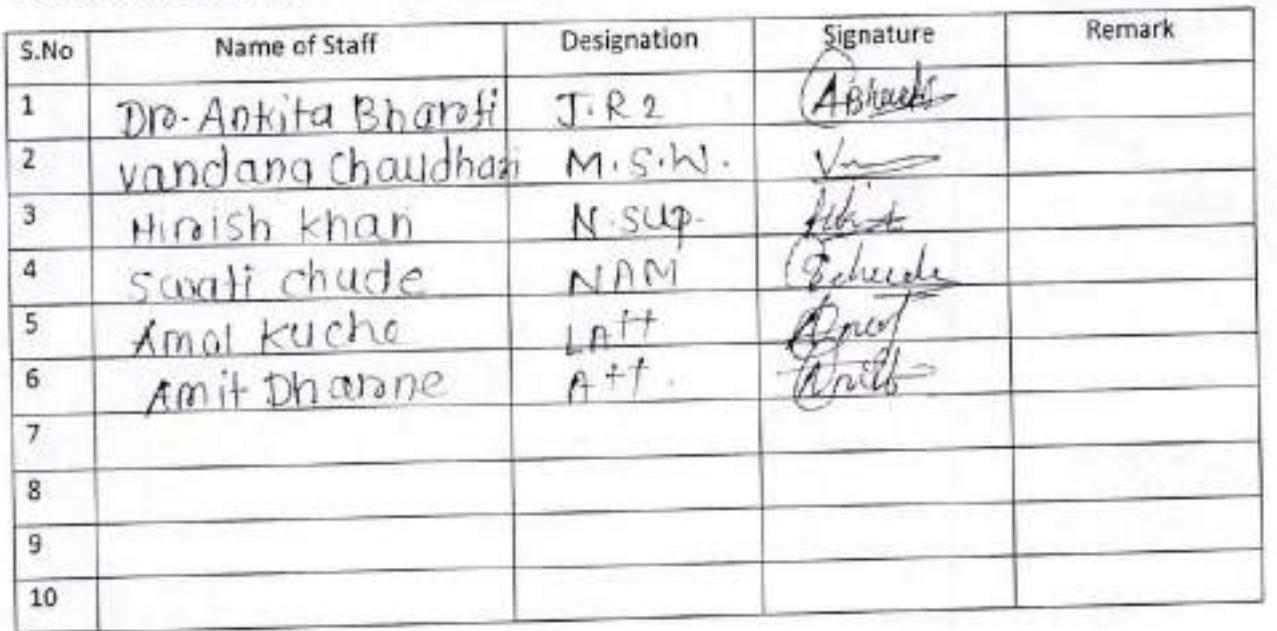 S.No Name of Staff Designation Signature Remark
1 Dr. Ankita Bharati J.R 2 ABharati
2 Vandana Chaudhari M.S.W.
3 Hirish Khan N.Sup.
4 Swati Chude NAM SChude
5 Amol Kucho LAtt Amol
6 Amit Dharne Att. Amit
7
8
9
10